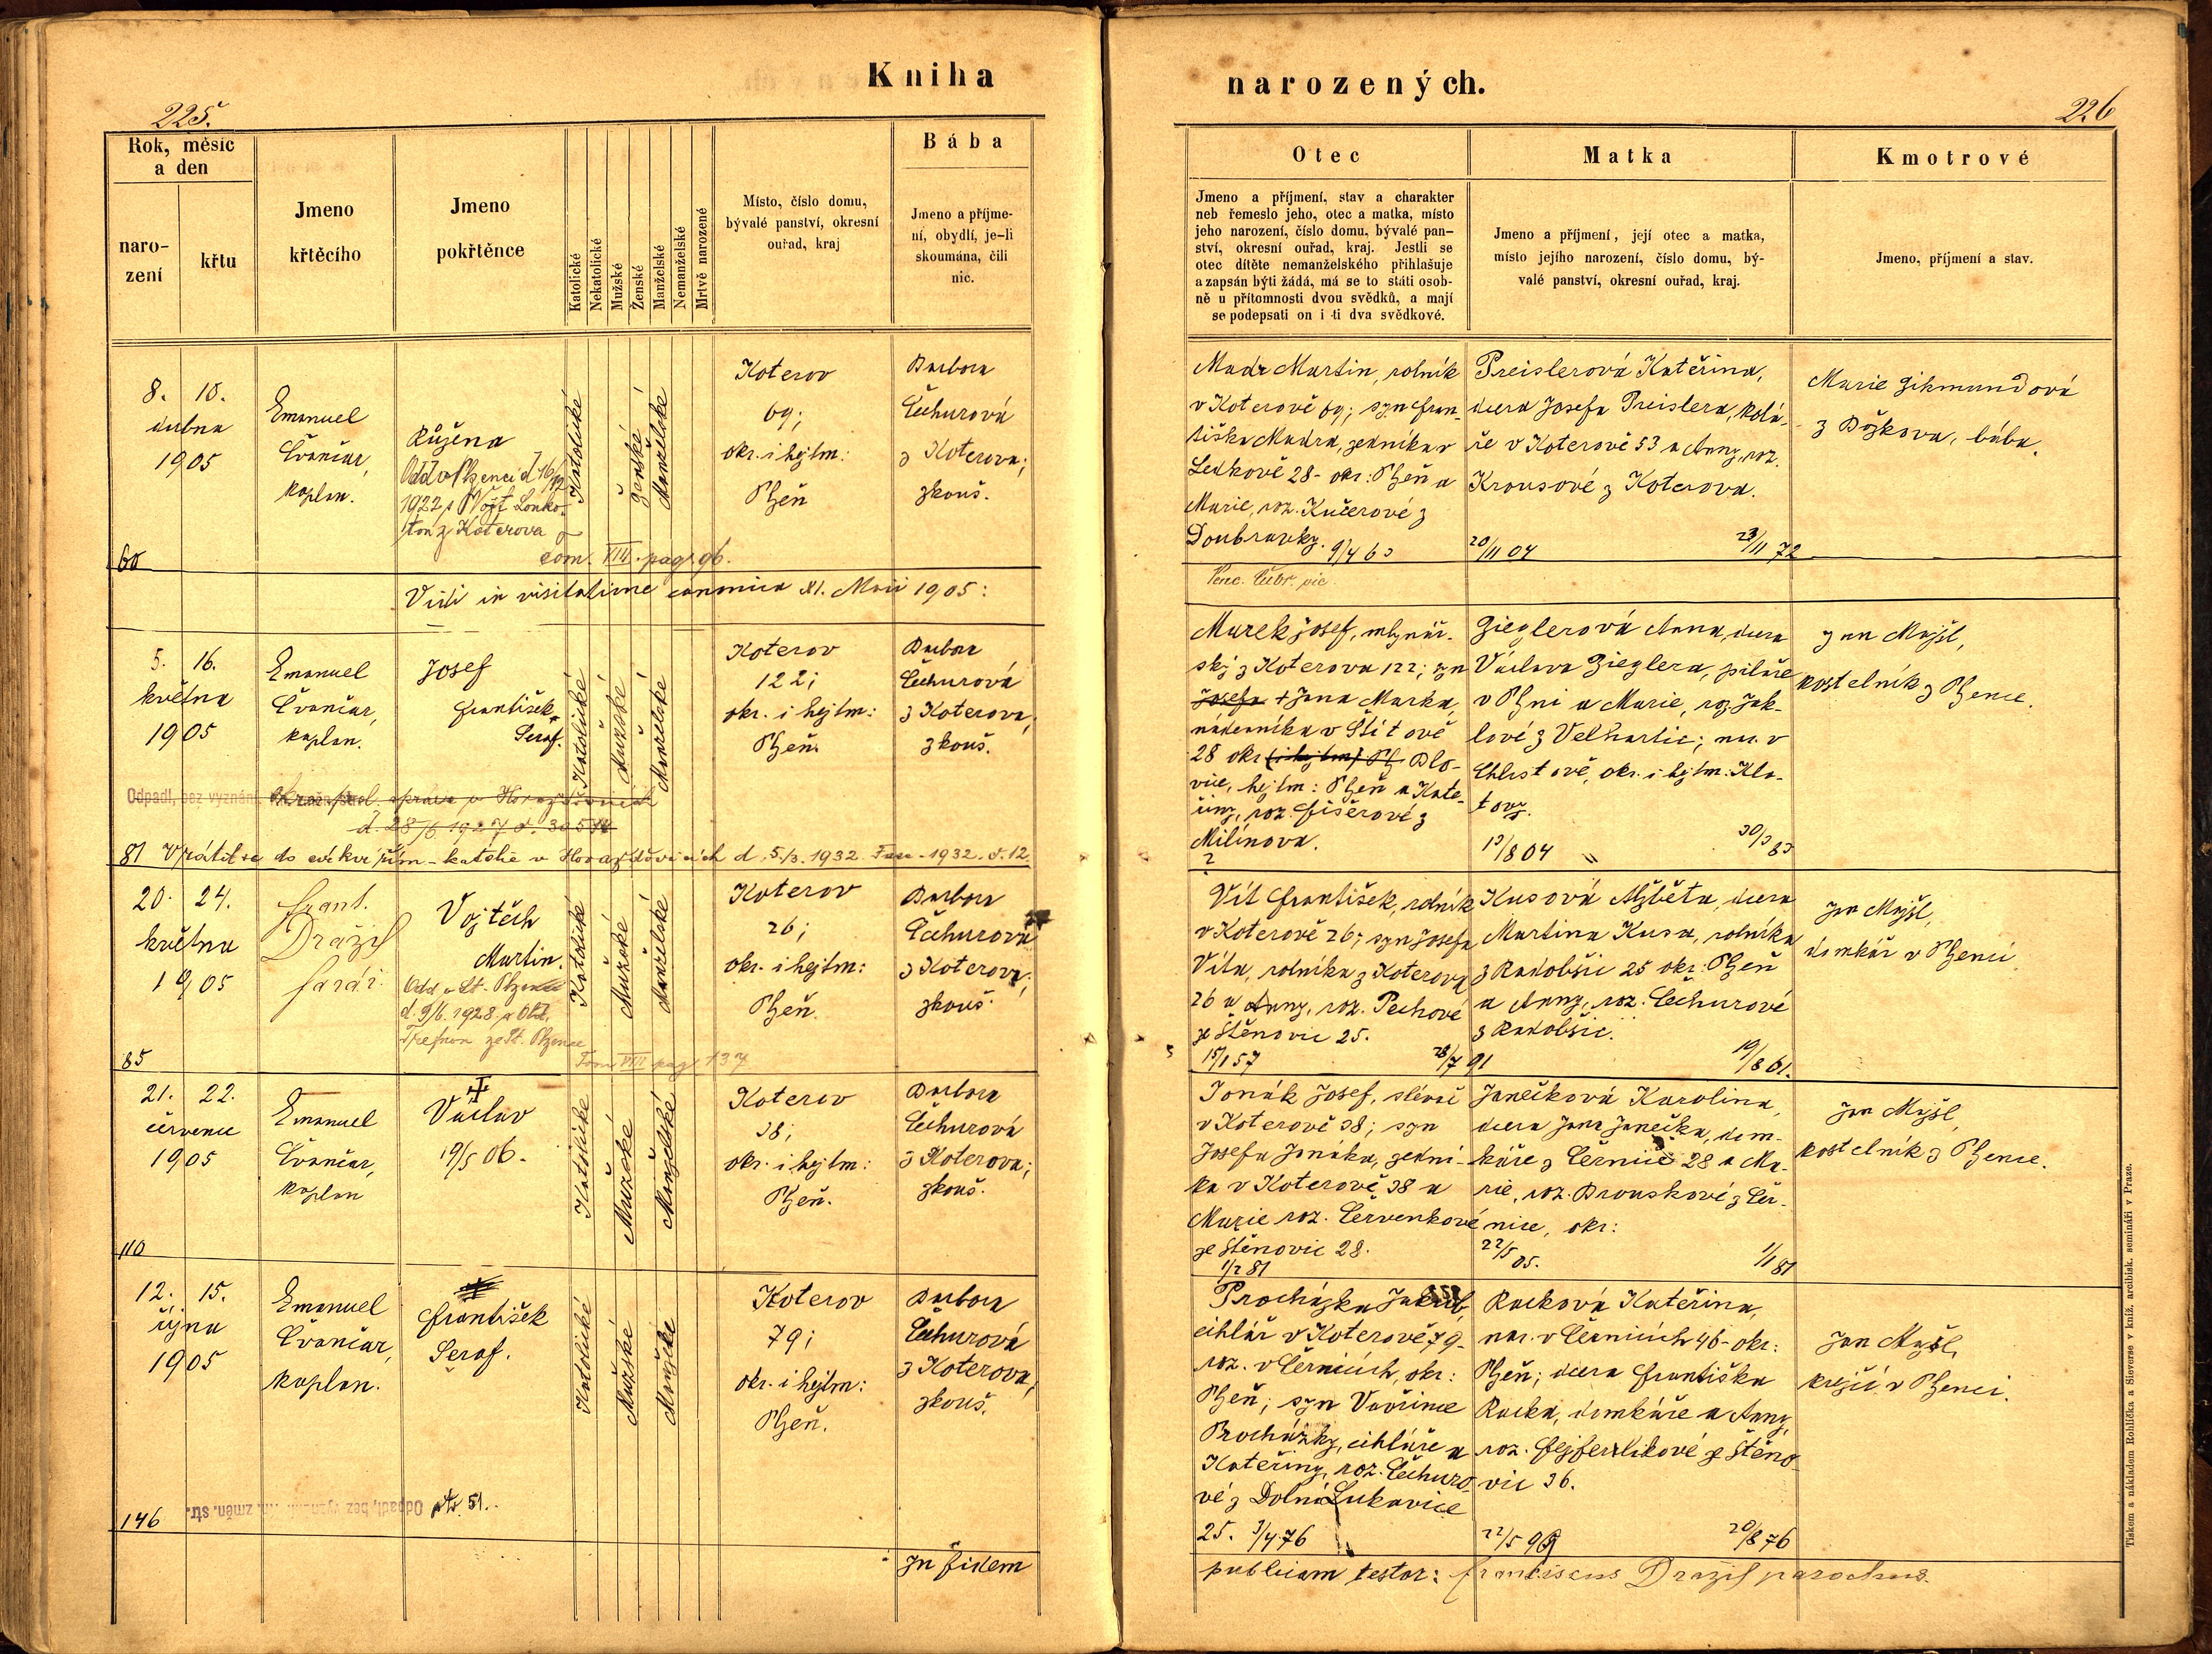 Kniha
narozených.
225.
226
Rok, měsíc
a den
naro-
zení
křtu
Jmeno
křtěcího
Jmeno
pokřtěnce
Katolické
Nekatolické
Mužské
Ženské
Manželské
Nemanželské
Mrtvě narozené
Místo, číslo domu,
bývalé panství, okresní
ouřad, kraj
Bába
Jmeno a příjme-
ní, obydlí, je-li
skoumána, čili
nic.
Otec
Jmeno a příjmení, stav a charakter
neb řemeslo jeho, otec a matka, místo
jeho narození, číslo domu, bývalé pan-
ství, okresní ouřad, kraj. Jestli se
otec dítěte nemanželského přihlašuje
a zapsán býti žádá, má se to státi osob-
ně u přítomnosti dvou svědků, a mají
se podepsati on i ti dva svědkové.
Matka
Jmeno a příjmení, její otec a matka,
místo jejího narození, číslo domu, bý-
valé panství, okresní ouřad, kraj.
Kmotrové
Jmeno, příjmení a stav.
8. 10.
dubna
1905
60
Emanuel
Čvančar,
kaplan.
Růžena
Odd v Plzenci d 16/12
1922 s Vojt. Lonko-
tou z Koterova
tom. VIII. pag. 96.
Katolické
Ženské
Manželské
Koterov
69;
okr. i hejtm:
Plzeň
Barbora
Čechurová
z Koterova;
zkouš.
Madr Martin, rolník
v Koterově 69; syn Fran-
tiška Madra, zedníka v
Ledkově 28 - okr: Plzeň a
Marie, roz. Kučerové z
Doubravky. 9/4 63
Preislerová Kateřina,
dcera Josefa Preislera, kolá-
ře v Koterově 53 a Anny, roz.
Krousové z Koterova.
20/11 04 23/11 72
Marie Zikmundová
z Božkova, bába.
Vidi in visitatione canonica XI. Maii 1905:
Venc. vic.
5. 16.
května
1905
Emanuel
Čvančar,
kaplan.
Josef
František
Seraf.
Katolické
Mužské
Manželské
Koterov
122;
okr. i hejtm:
Plzeň.
Barbora
Čechurová
z Koterova;
zkouš.
Marek Josef, mlynář-
ský z Koterova 122; syn
Josefa + Jana Marka,
nádenníka v Štítově
28 okr (i hejtm) Pl Blo-
vice, hejtm: Plzeň a Kate-
řiny, roz. Fišerové z
Milínova.
?
Zieglerová Anna, dcera
Václava Zieglera, pilaře
v Plzni a Marie, roz. Jak-
lové z Velhartic; nar. v
Chlistově, okr. i hejtm. Kla-
tovy.
13/8 04 30/3 83
Jan Majšl,
kostelník z Plzence.
Odpadl, bez vyznání
d. 28/6 1927 č. 30574
81 Vrátil se do církve řím-katolic v Horažďovicích d. 5./3. 1932 Fasc. 1932. č. 12
20. 24.
května
1905
85
Frant.
Dražil
farář.
Vojtěch
Martin.
Odd v St. Plzenci
d. 9/6. 1928 s
ze St. Plzence
Tom VIII pag 137
Katolické
Mužské
Manželské
Koterov
26;
okr. i hejtm:
Plzeň.
Barbora
Čechurová
z Koterova;
zkouš.
Vít František, rolník
v Koterově 26; syn Josefa
Víta, rolníka z Koterova
26 a Anny, roz. Pechové
ze Štěnovic 25.
15/1 57
Kusová Alžběta, dcera
Martina Kusa, rolníka
z Radobšic 25 okr: Plzeň
a Anny, roz. Čechurové
z Radobšic.
28/7 91 19/8 61.
Jan Majšl,
domkář v Plzenci
21. 22.
července
1905
110
Emanuel
Čvančar,
kaplan
Václav
19/5 06.
Katolické
Mužské
Manželské
Koterov
38;
okr. i hejtm:
Plzeň.
Barbora
Čechurová
z Koterova;
zkouš.
Jonák Josef, slévač
v Koterově 38; syn
Josefa Jonáka, zední-
ka v Koterově 38 a
Marie roz. Červenkové
ze Štěnovic 28.
1/2 81
Janečková Karolina,
dcera Jana Janečka, dom-
káře z Černic 28 a Ma-
rie, roz. Brouskové z Čer-
nice, okr:
22/5 05. 1/1 81
Jan Majšl,
kostelník z Plzence.
12. 15.
října
1905
146
Emanuel
Čvančar,
kaplan.
František
Seraf.
Katolické
Mužské
Manželské
Koterov
79;
okr. i hejtm:
Plzeň.
Barbora
Čechurová
z Koterova,
zkouš.
Procházka Jakub,
cihlář v Koterově 79-
roz. v Černicích, okr:
Plzeň; syn Vavřince
Procházky, cihláře a
Kateřiny, roz. Čechuro-
vé z Dolní Lukavice
25. 3/4 76
Racková Kateřina,
nar. v Černicích 46 - okr:
Plzeň; dcera Františka
Racka, domkáře a Anny,
roz. Fejferlíkové ze Štěno-
vic 36.
22/5 99 20/8 76
Jan Majšl,
krejčí v Plzenci.
Odpadl, bez vyznání. Kn. změn. str. 51.
In fidem
publicam testor: Franciscus Dražil parochus.
Tiskem a nákladem Rohlíčka a Sieverse v kníž. arcibisk. semináři v Praze.